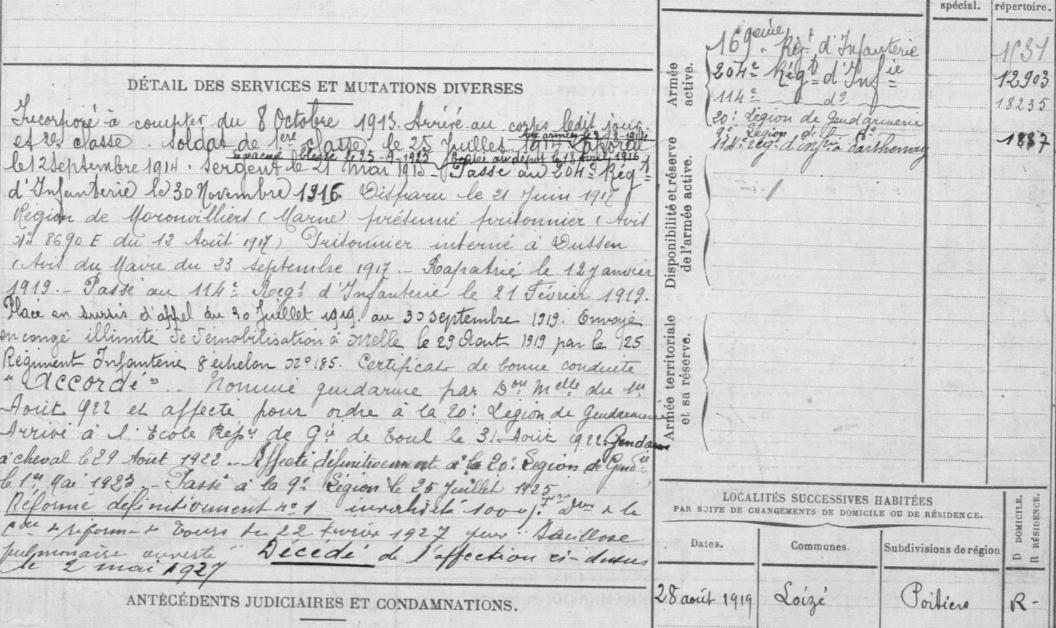 spécial.
répertoire.
Armée active.
169eme Régt d'Infanterie
1631
204e Régt d'Infie
12.903
114e d°
18235
20e Légion de Gendarmerie
9e Légion d°
Disponibilité et réserve de l'armée active.
114e Rég. d'infie à Parthenay
1887
Armée territoriale et sa réserve.
DÉTAIL DES SERVICES ET MUTATIONS DIVERSES
Incorporé à compter du 8 Octobre 1913. Arrivé au corps ledit jour
et 2e classe. Soldat de 1ere classe le 25 Juillet 1914. Caporal
aux armées le
Evacué blessé le 25-9-1915 Passé au dépôt le 1916
le 12 septembre 1914. Sergent le 21 mai 1915. Passé au 204e Régt
d'Infanterie le 30 Novembre 1916. Disparu le 21 Juin 1917
Région de Moronvilliers (Marne) présumé prisonnier (Avis
N° 8690 E du 12 Août 1917) Prisonnier interné à Dussen
(Avis du Maire du 23 septembre 1917. - Rapatrié le 12 janvier
1919. - Passé au 114e Régt d'Infanterie le 21 Février 1919.
Placé en sursis d'appel du 30 Juillet 1919 au 30 septembre 1919. Envoyé
en congé illimité de démobilisation à Melle le 29 Août 1919 par le 125
Régiment Infanterie 8 échelon N° 185. Certificat de bonne conduite
"Accordé". Nommé gendarme par Don Melle du
Août 922 et affecté pour ordre à la 20e Légion de Gendarmerie
Arrivé à l'Ecole Repre de Gie de Toul le 31 Août 1922. Gendarme
à cheval le 29 Août 1922. Affecté définitivement à la 20e Légion de Gendie
le 1er Mai 1923 - Passé à la 9e Légion le 25 Juillet 1925
Réformé définitivement n° 1 invalidité 100% par Don de la
Con de réforme de Tours du 22 février 1927 pour "Bacillose
pulmonaire ouverte" Décédé de l'affection ci-dessus
le 2 mai 1927
ANTÉCÉDENTS JUDICIAIRES ET CONDAMNATIONS.
LOCALITÉS SUCCESSIVES HABITÉES
PAR SUITE DE CHANGEMENTS DE DOMICILE OU DE RÉSIDENCE.
Dates.
Communes.
Subdivisions de région
D DOMICILE.
R RÉSIDENCE.
28 août 1919
Loizé
Poitiers
R -